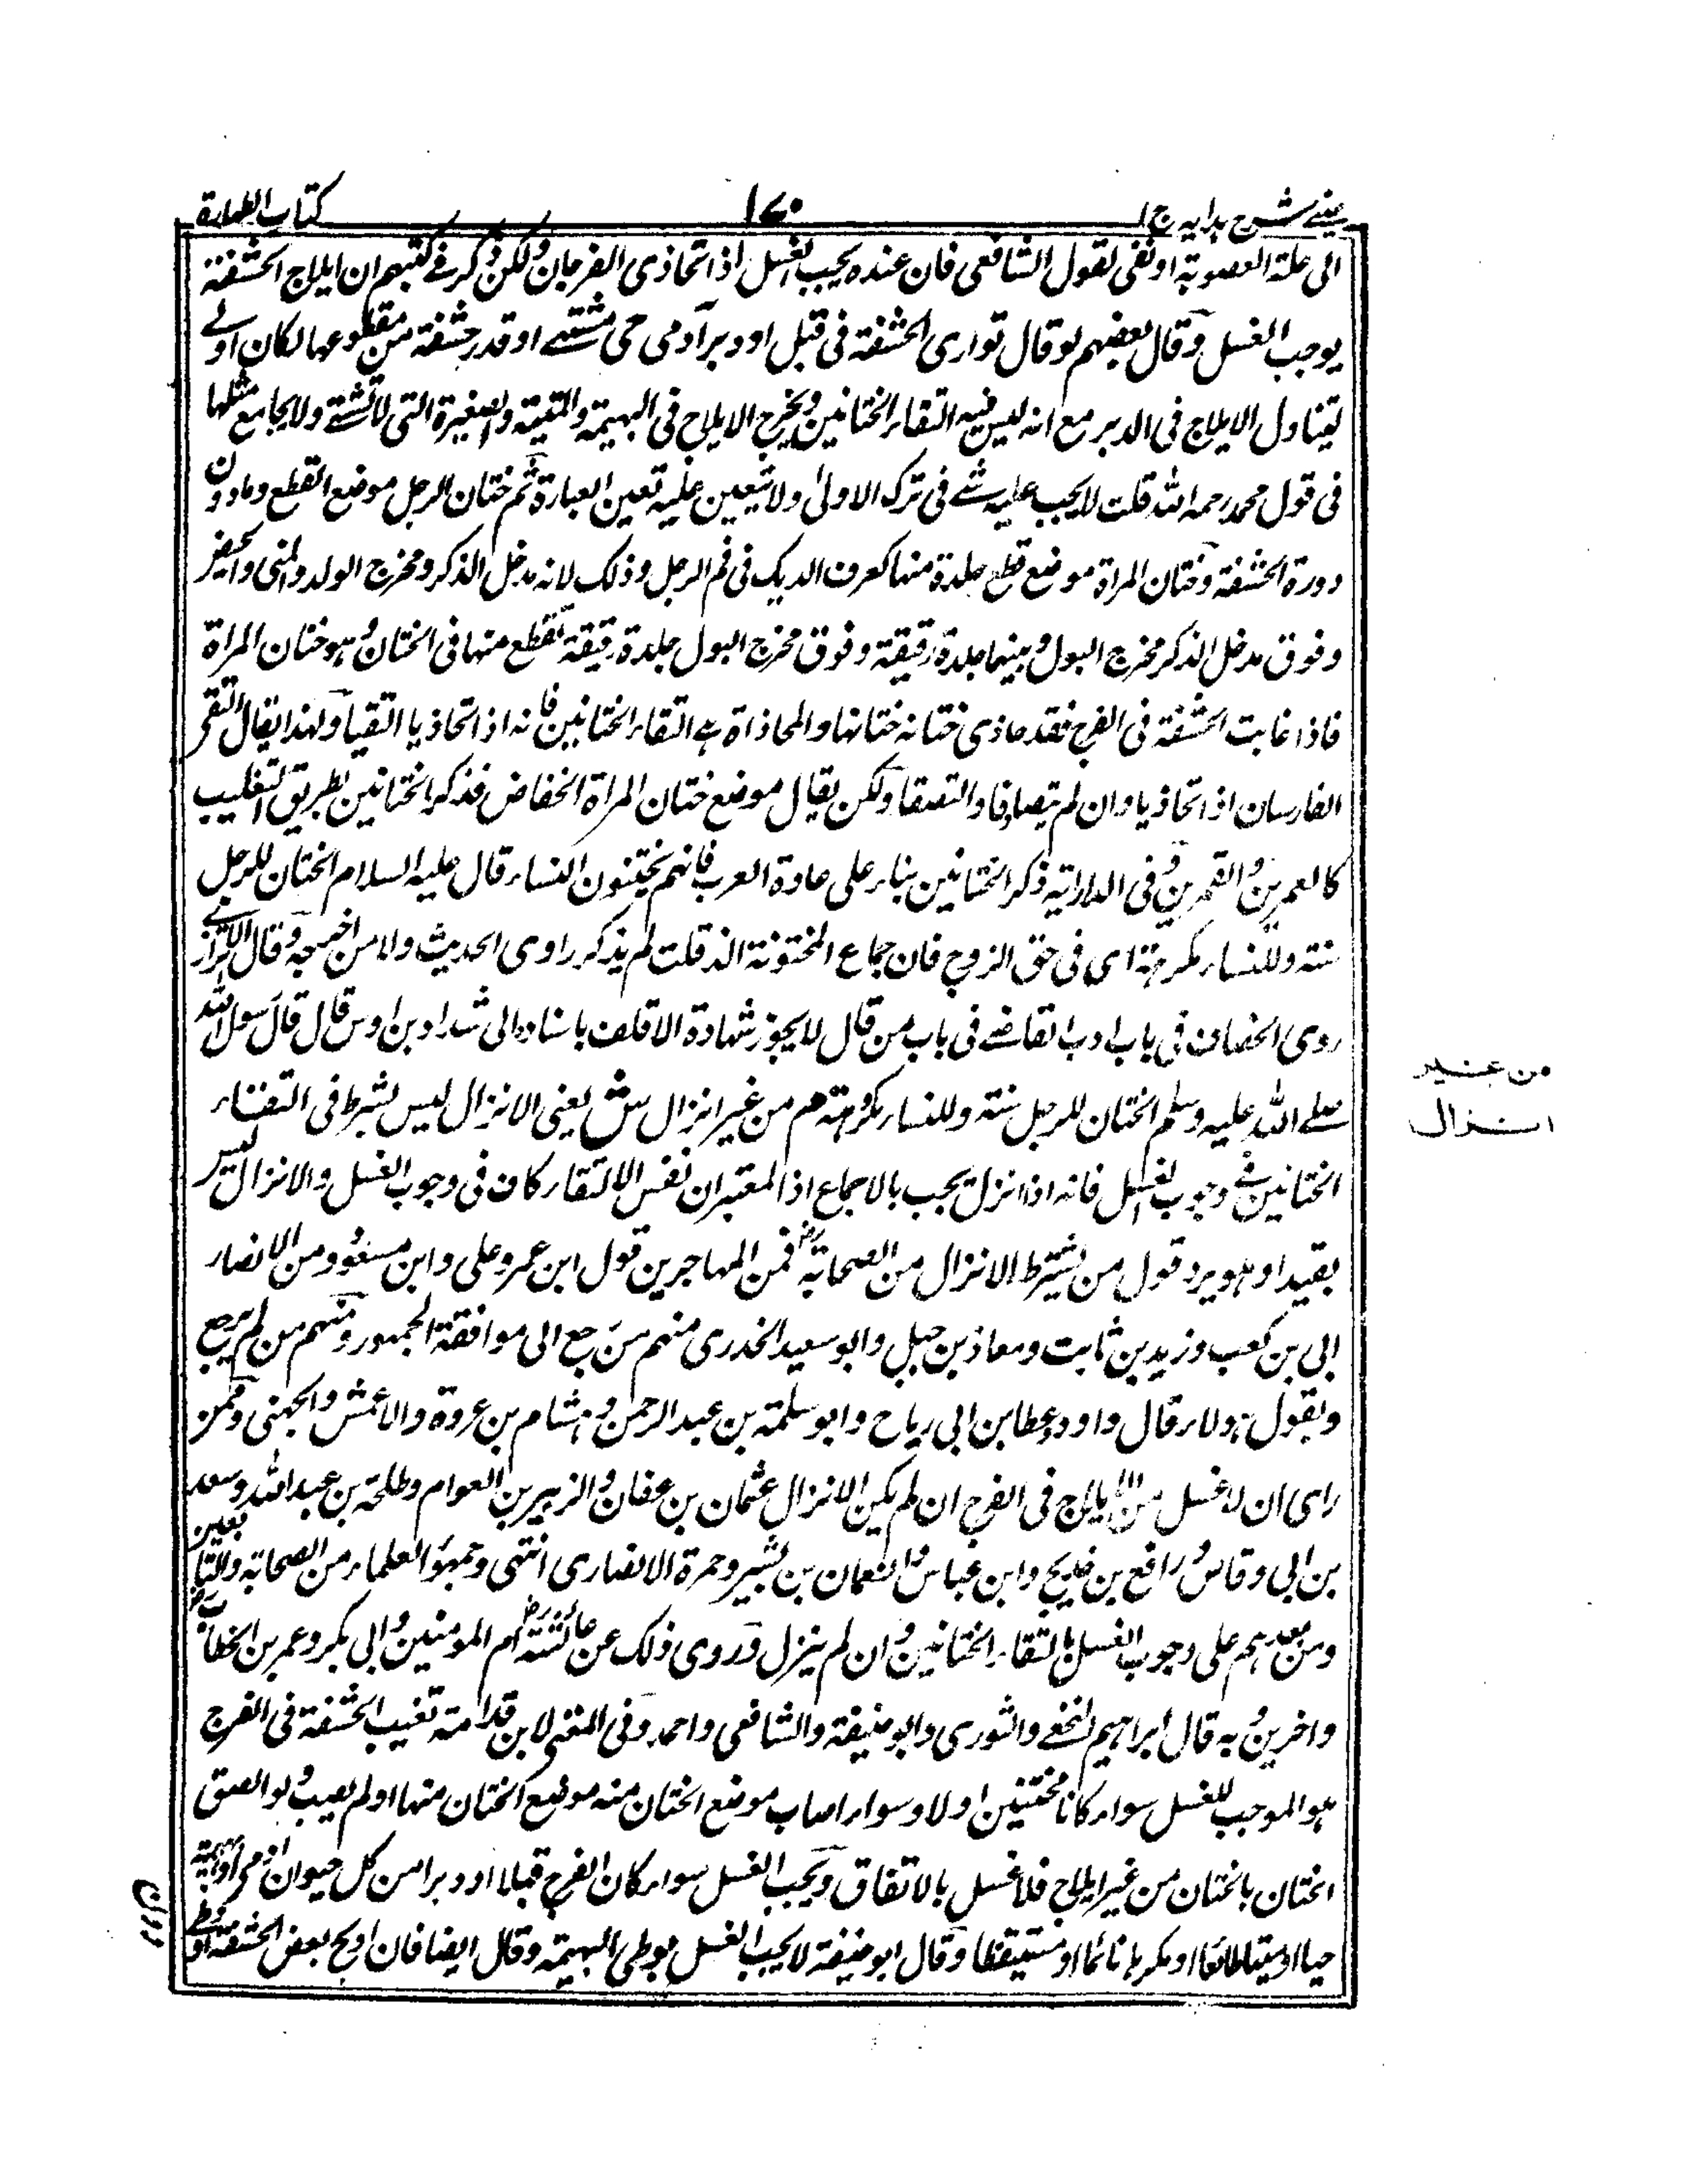 عینی شرح ہدایہ ج ۱
۱۷۰
کتاب الطہارۃ
الی علۃ العصوبۃ او نفی لقول الشافعی فان عندہ یجب الغسل اذا تحاذی الفرجان ولکن ذکر فی کتبہم ان ایلاج الحشفۃ
یوجب الغسل وقال بعضہم لو قال تواری الحشفۃ فی قبل او دبر آدمی حی مشتہی او قدر حشفۃ من مقطوعہا لکان اولی
لیتناول الایلاج فی الدبر مع انہ لیس فیہ التقاء الختانین ویخرج الایلاج فی البہیمۃ والمیتۃ والصغیرۃ التی لا تشتہی ولا یجامع مثلہا
فی قول محمد رحمہ اللہ قلت لا یجب علیہ شے فی ترک الاولیٰ ولا یتعین علیہ تعین العبارۃ ثم ختان الرجل موضع القطع وما دون
دورۃ الحشفۃ وختان المراۃ موضع قطع جلدۃ منہا کعرف الدیک فی فم الرجل وذلک لانہ مدخل الذکر ومخرج الولد والمنی والحیض
وفوق مدخل الذکر مخرج البول وبینہما جلدۃ رقیقۃ وفوق مخرج البول جلدۃ رقیقۃ تقطع منہا فی الختان وہو ختان المراۃ
فاذا غابت الحشفۃ فی الفرج فقد حاذی ختانہ ختانہا والمحاذاۃ ہے التقاء الختانین فانہ اذا تحاذیا التقیا ولہذا یقال التقی
الفارسان اذا تحاذیا وان لم یتصادفا والتصقا ولکن یقال موضع ختان المراۃ الخفاض فذکر الختانین بطریق التغلیب
کالعمرین والقمرین وفی الدرایۃ ذکر الختانین بناء علی عادۃ العرب فانہم یختنون النساء قال علیہ السلام الختان للرجل
سنتہ وللنساء مکرمۃ ای فی حق الزوج فان جماع المختونۃ الذ قلت لم یذکر راوی الحدیث ولا من اخرجہ وقال الاترازی
روی الخصاف فی باب ادب القاضے فی باب من قال لا یجوز شہادۃ الاقلف باسنادہ الی شداد بن اوس قال قال رسول اللہ
صلے اللہ علیہ وسلم الختان للرجل سنتہ وللنساء مکرمۃ م من غیر انزال ش یعنی الانزال لیس بشرط فی التقاء
من غیر
انزال
الختانین فی وجوب الغسل فانہ اذا انزل یجب بالاجماع اذا المعتبر ان نفس الالتقاء کاف فی وجوب الغسل والانزال لیس
بقید او ہو یرد قول من یشترط الانزال من الصحابۃ فمن المہاجرین قول ابن عمر وعلی وابن مسعود ومن الانصار
ابی بن کعب وزید بن ثابت ومعاذ بن جبل وابو سعید الخدری منہم من رجع الی موافقۃ الجمہور ومنہم من لم یرجع
وبقول ہولاء قال داود وعطا بن ابی رباح وابو سلمۃ بن عبد الرحمن وہشام بن عروۃ والاعمش والجہنی وممن
رای ان لا غسل من الایلاج فی الفرج ان لم یکن الانزال عثمان بن عفان والزبیر بن العوام وطلحۃ بن عبد اللہ وسعد
بن ابی وقاص ورافع بن خدیج وابن عباس والنعمان بن بشیر وحمرۃ الانصاری انتہی وجمہور العلماء من الصحابۃ والتابعین
ومن بعدہم علی وجوب الغسل بالتقاء الختانین وان لم ینزل وروی ذلک عن عائشۃ ام المومنین وابی بکر وعمر بن الخطاب
واخرین وبہ قال ابراہیم النخعے والثوری وابو حنیفۃ والشافعی واحمد وفی المغنی لابن قدامۃ تغییب الحشفۃ فی الفرج
ہو الموجب للغسل سواء کانا مختتنین اولا وسواء اصاب موضع الختان منہ موضع الختان منہا او لم یصب ولو الصق
الختان بالختان من غیر ایلاج فلا غسل بالاتفاق ویجب الغسل سواء کان الفرج قبلا او دبرا من کل حیوان آدمی او بہیمۃ
حیا او میتا طائعا او مکرہا نائما او مستیقظا وقال ابو حنیفۃ لا یجب الغسل بوطی البہیمۃ وقال ایضا فان اولج بعض الحشفۃ او وطی